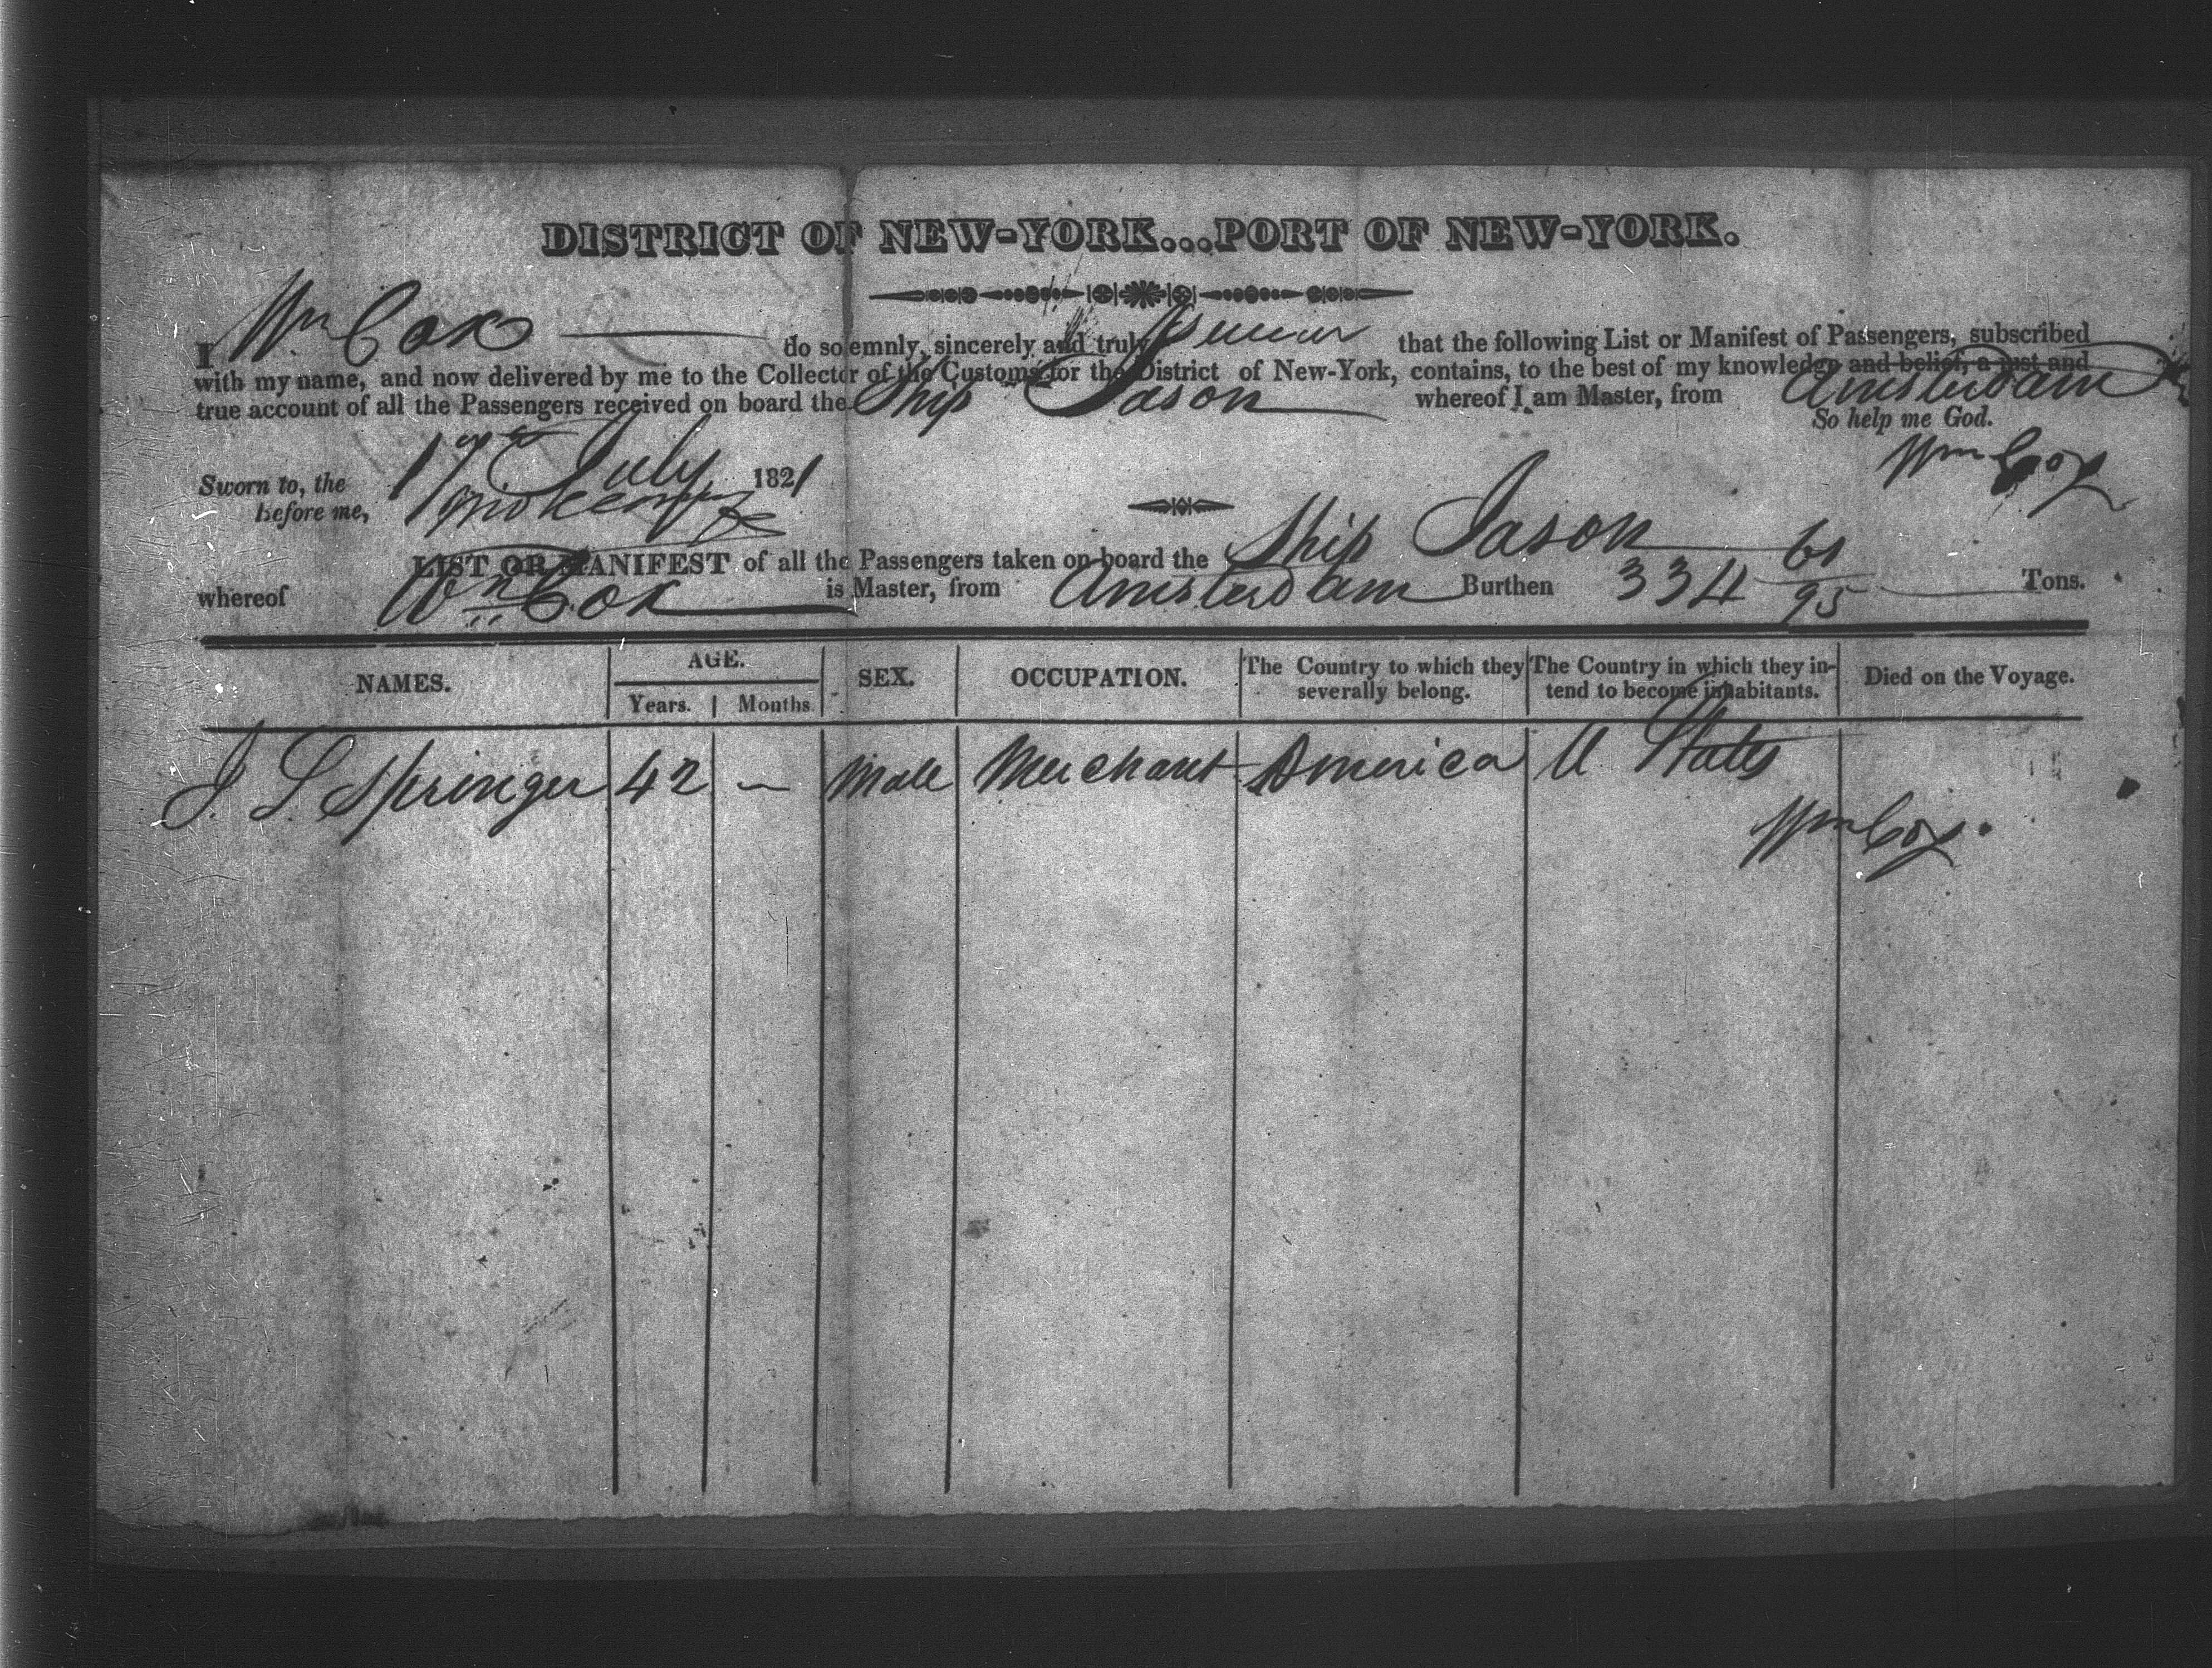 DISTRICT OF NEW-YORK...PORT OF NEW-YORK.
I Wm Cox do solemnly, sincerely and truly swear that the following List or Manifest of Passengers, subscribed
with my name, and now delivered by me to the Collector of the Customs for the District of New-York, contains, to the best of my knowledge and belief, a just and
true account of all the Passengers received on board the Ship Jason whereof I am Master, from Amsterdam
So help me God.
Sworn to, the 17th July 1821 Wm Cox
before me,
LIST OR MANIFEST of all the Passengers taken on board the Ship Jason
whereof Wm Cox is Master, from Amsterdam Burthen 334 61/95 Tons.
NAMES. AGE. Years. Months. SEX. OCCUPATION. The Country to which they severally belong. The Country in which they intend to become inhabitants. Died on the Voyage.
J. S. Springer 42 – Male Merchant America U States
Wm Cox.